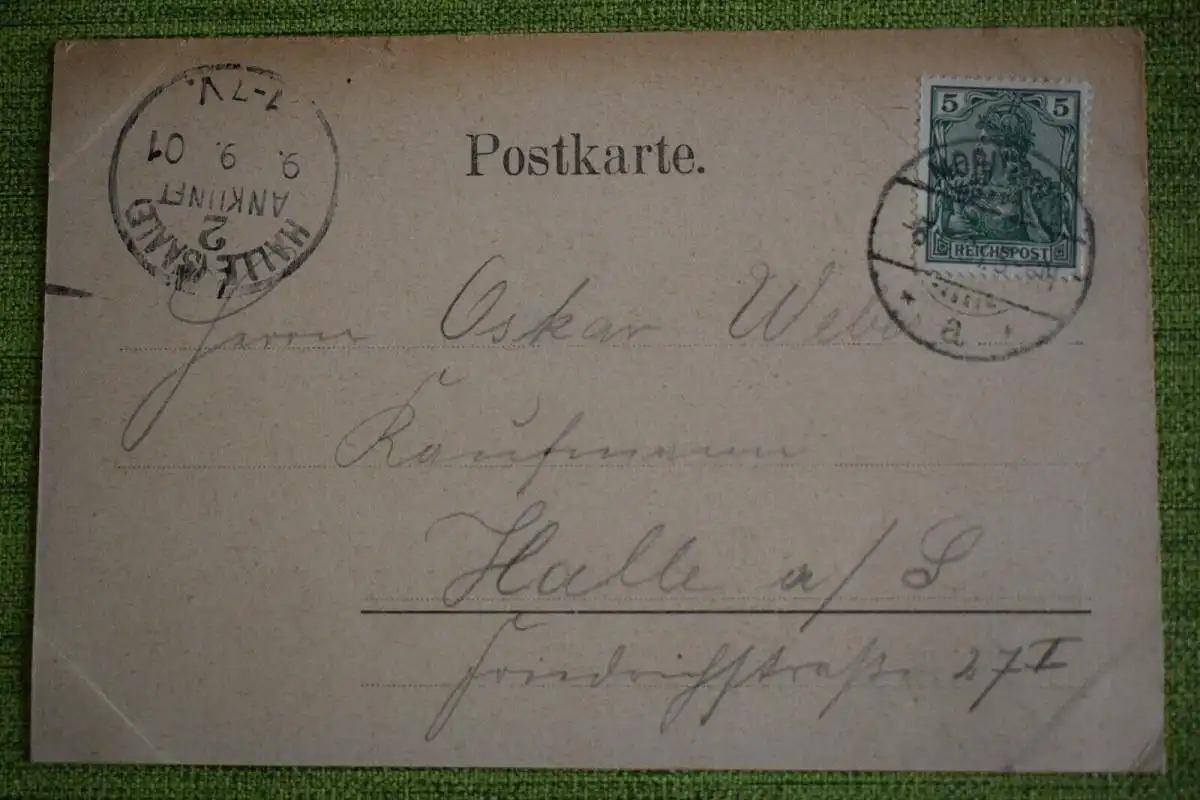 Postkarte.
5 5
REICHSPOST
a
1-7 V.
9. 9. 01
ANKUNFT
2
HALLE (SAALE)
Herrn Oskar
Kaufmann
Halle a/S
Friedrichstraße 27 I